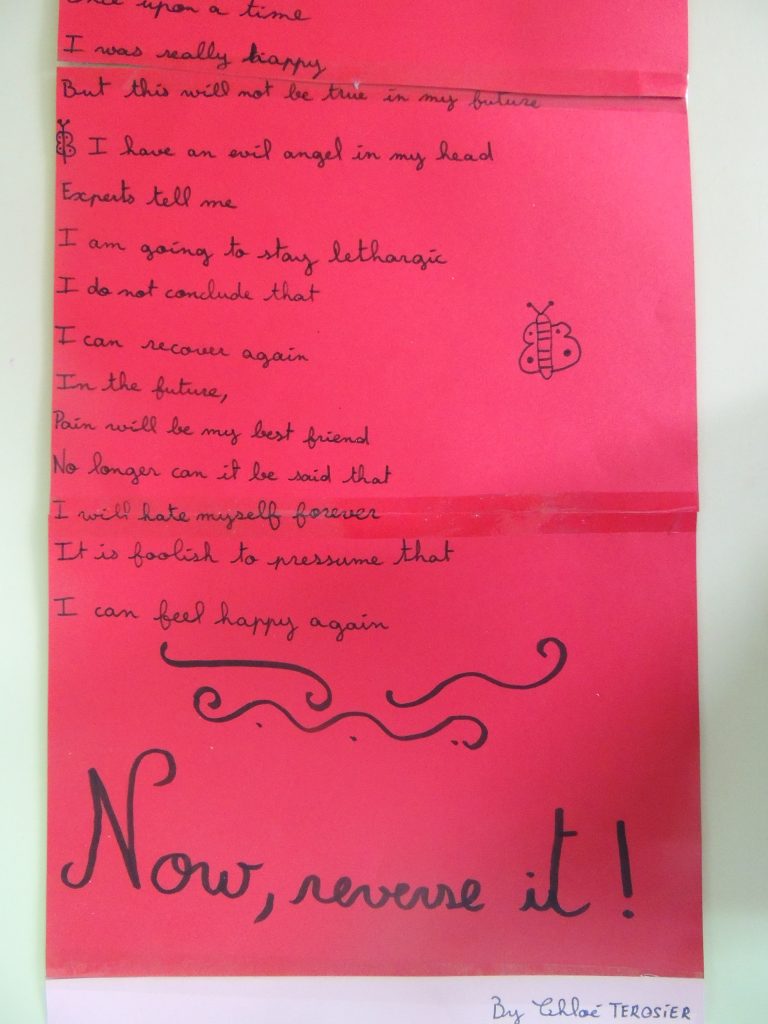 Once upon a time
I was really happy
But this will not be true in my future
I have an evil angel in my head
Experts tell me
I am going to stay lethargic
I do not conclude that
I can recover again
In the future,
Pain will be my best friend
No longer can it be said that
I will hate myself forever
It is foolish to pressume that
I can feel happy again
Now, reverse it!
By Chloé TEROSIER